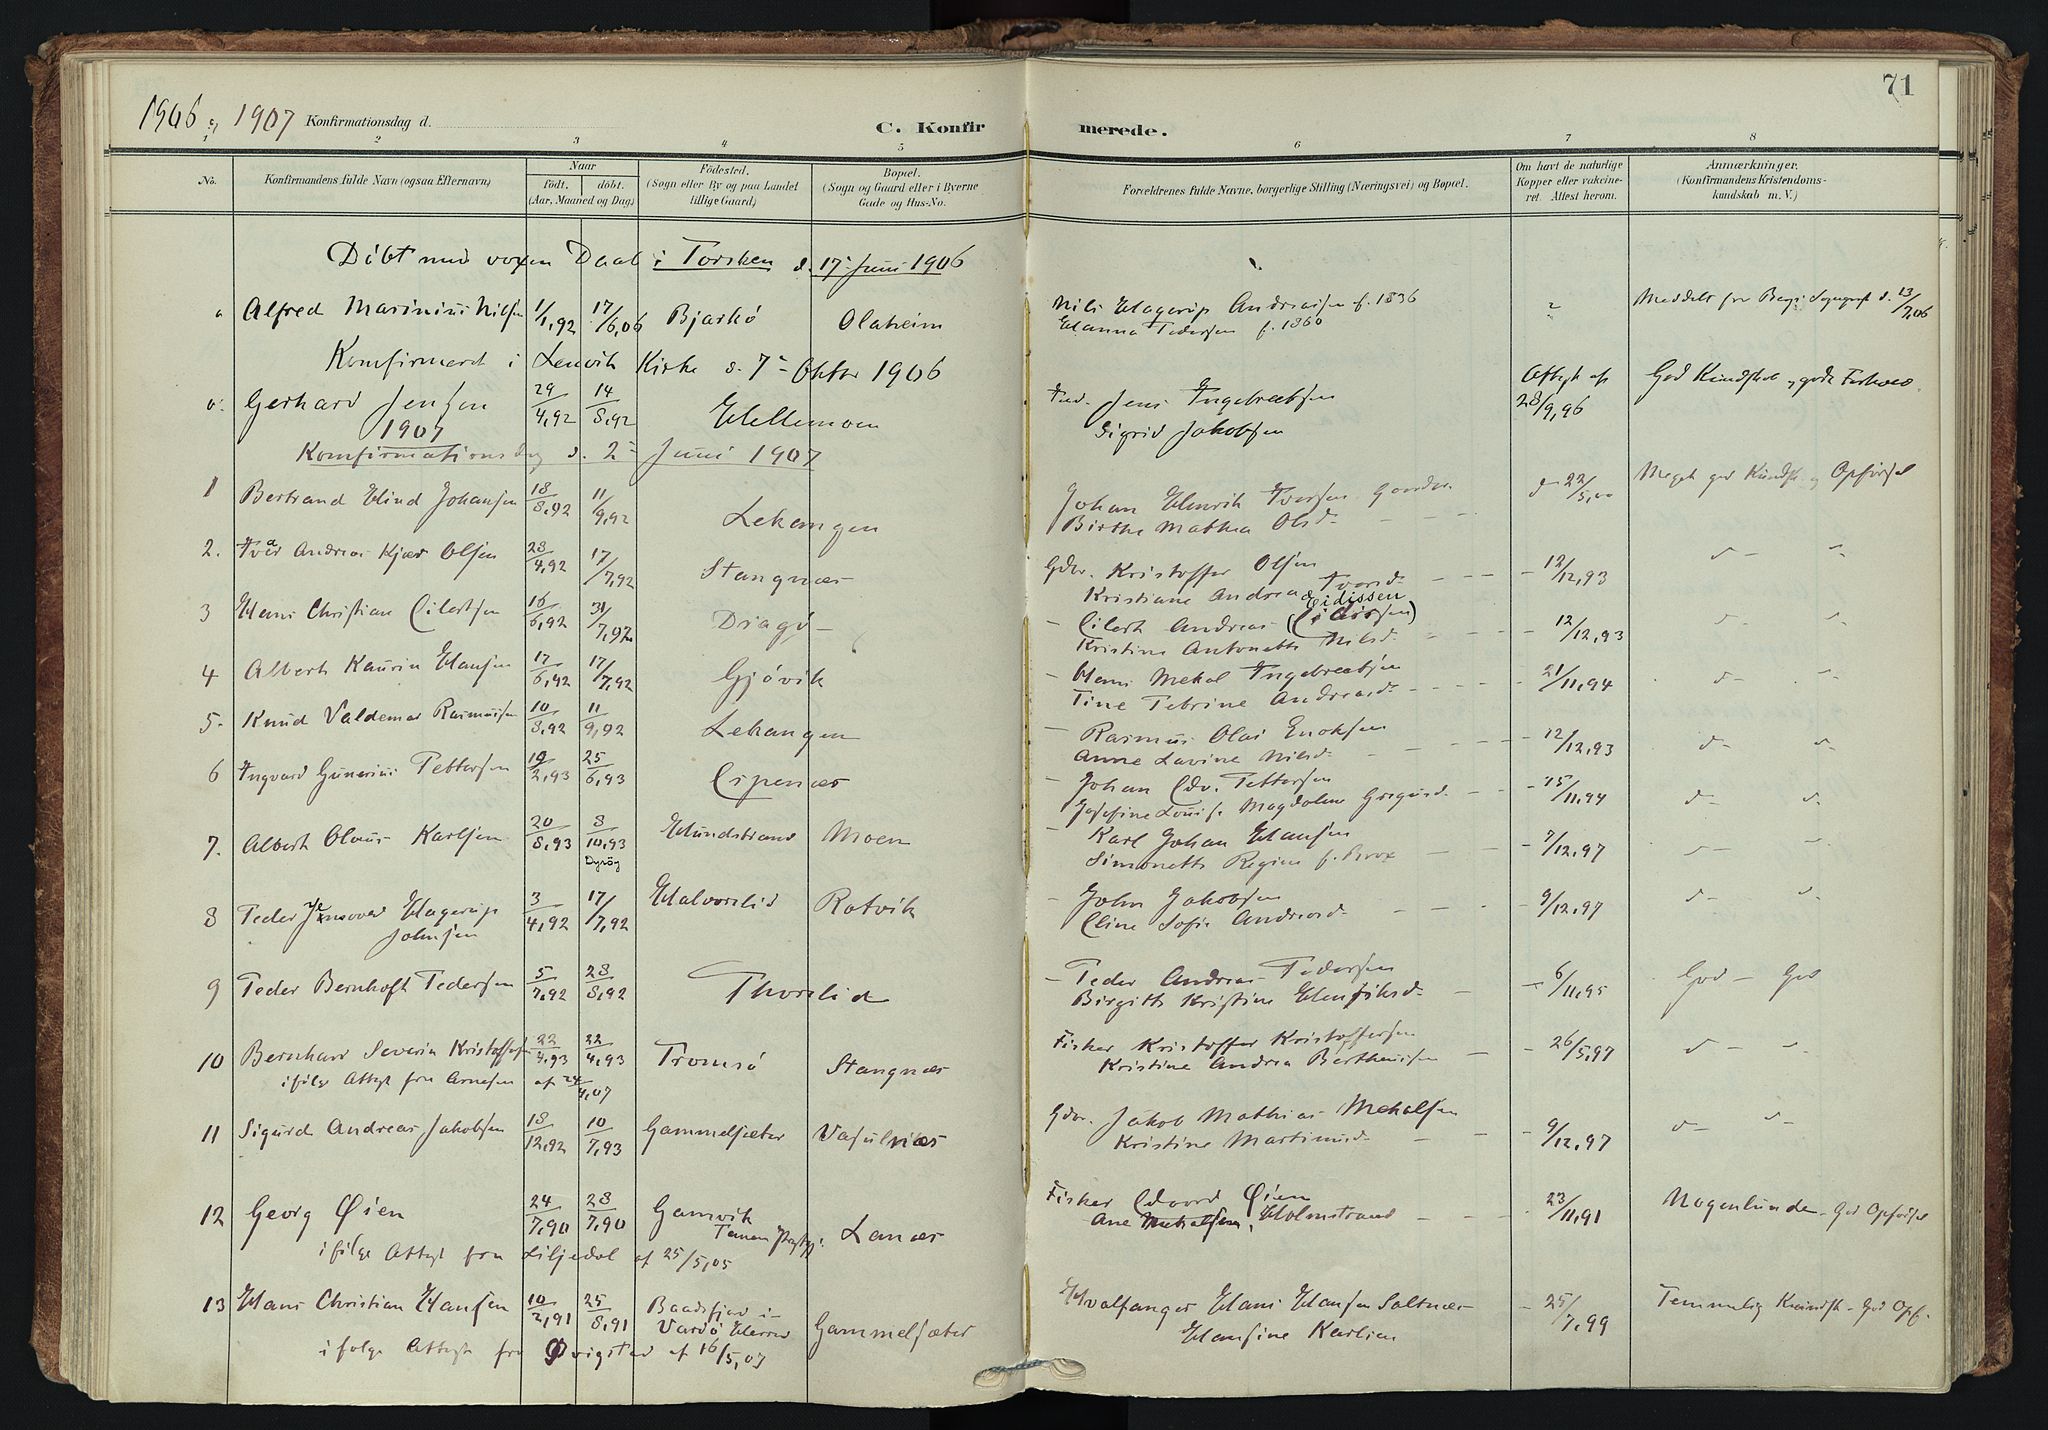 71
1906 og 1907 Konfirmationsdag d.
C. Konfirmerede.
1 2 3 4 5 6 7 8
No.
Konfirmandens fulde Navn (ogsaa Efternavn)
Naar
født. døbt.
(Aar, Maaned og Dag)
Fødested.
(Sogn eller By og paa Landet
tillige Gaard)
Bopæl.
(Sogn og Gaard eller i Byerne
Gade og Hus-No.
Forældrenes fulde Navne, borgerlige Stilling (Næringsvei) og Bopæl.
Om havt de naturlige
Kopper eller vaccine-
ret. Attest herom.
Anmærkninger.
(Konfirmandens Kristendoms-
kundskab m. V.)
Døbt med voxen Daab i Torsken d. 17 Juni 1906
Alfred Marinius Nilsen 1/1,92 17/6,06 Bjarkø Olaheim
Nils Hagerup Andreassen f. 1836
Hanna Pedersen f. 1860
Meddelt fra d. 13/7,06
Konfirmeret i Lenvik Kirke d. 7 Oktbr 1906
Gerhard Jensen 29/4,92 14/8,92 Hellemoen
Jens Ingebregtsen
Sigrid Jakobsen
Attest af 28/9,96
God Kundskab, gode Forhold.
1907
Konfirmationsdag d. 2 Juni 1907
1 Bertrand Elind Johansen 18/8,92 11/9,92 Lekangen
Johan Henrik Iversen Gaardbr.
Birthe Mathea Olsd.
22/5,00
Meget god Kundsk. og Opførsel
2. Ivar Andreas Kjær Olsen 28/4,92 17/7,92 Stangnæs
Gbr. Kristoffer Olsen
Kristiane Andrea Iversd.
12/12,93
3 Hans Christian Eilertsen 16/6,92 31/7,92 Dragø
Eidissen
Eilert Andreas
Kristine Antonette Nilsd.
12/12,93
4 Albert Kaurin Hansen 17/6,92 17/7,92 Gjøvik
Hans Mekal Ingebregtsen
Tine Petrine Andreasd.
21/11,94
5. Knud Valdemar Rasmussen 10/8,92 11/9,92 Lekangen
Rasmus Olai Enoksen
Anne Lavine Nilsd.
12/12,93
6 Ingvard Gunerius Pettersen 19/2,93 25/6,93 Espenæs
Johan Edv. Pettersen
Josefine Louise Magdalene Gregusd.
15/11,94
7. Albert Olaus Karlsen 20/8,93 8/10,93 Hundstrand Moen
Dyrøy
Karl Johan Hansen
Simonette Regine f. Brox
7/12,97
8 Peder Jensover Hagerup 3/4,92 17/7,92 Halvorslid Rotvik
Johnsen
John Jakobsen
Eline Sofie Andreasd.
9/12,97
9 Peder Bernhoft Pedersen 5/7,92 28/8,92 Thorslid
Peder Andreas Pedersen
Birgitte Kristine Henriksd.
6/11,95
God God
10 Bernhard Severin Kristoffersen 22/4,93 22/4,93 Tromsø Stangnæs
ifølge Attest fra Arnesen af 24/4,07
Fisker Kristoffer Kristoffersen
Kristine Andrea Bertheussen
26/5,97
11 Sigurd Andreas Jakobsen 18/12,92 10/7,93 Gammelsæter Vasulnæs
Gbr. Jakob Mathias Mekalsen
Kristine Martinusd.
9/12,97
12 Georg Øien 24/7,90 28/7,90 Gamvik Lanæs
Tanen Prestgj.
ifølge Attest fra Liljedal af 25/5,05
Fisker Edvard Øien
Ane Mekalsen Holmstrand
23/11,91
Nogenlunde God Opførsel
13 Hans Christian Hansen 10/2,91 25/8,91 Baadsfjord i Gammelsæter
Vardø Herred
ifølge Attest fra Qvigstad af 16/5,07
Hvalfanger Hans Hansen Saltnes
Hansine Karlsen
25/7,99
Temmelig Kundsk. God Opf.